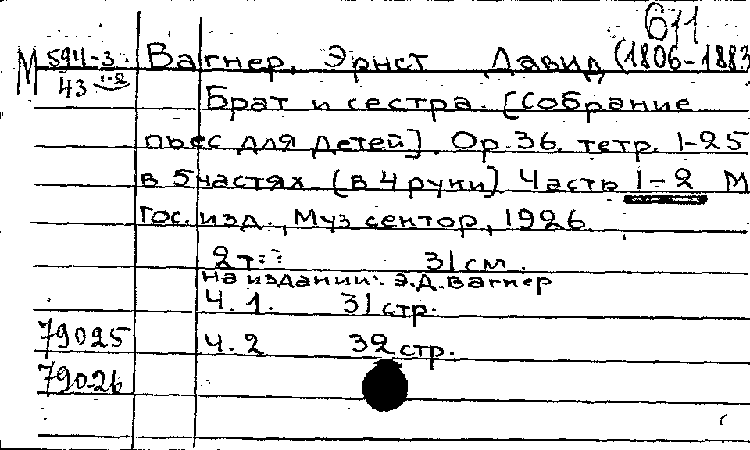 611
М 594-3 Вагнер, Эрнст Давид (1806-1883
43 1-2
Брат и сестра. [Собрание
пьес для детей]. Ор. 36. тетр. 1-25
в 5 частях (в 4 руки) Часть 1-2 М
Гос. изд., Муз сектор, 1926
2 т. 31 см.
на издании: Э.Д. Вагнер
Ч. 1. 31 стр.
79025 Ч. 2 32 стр.
79026